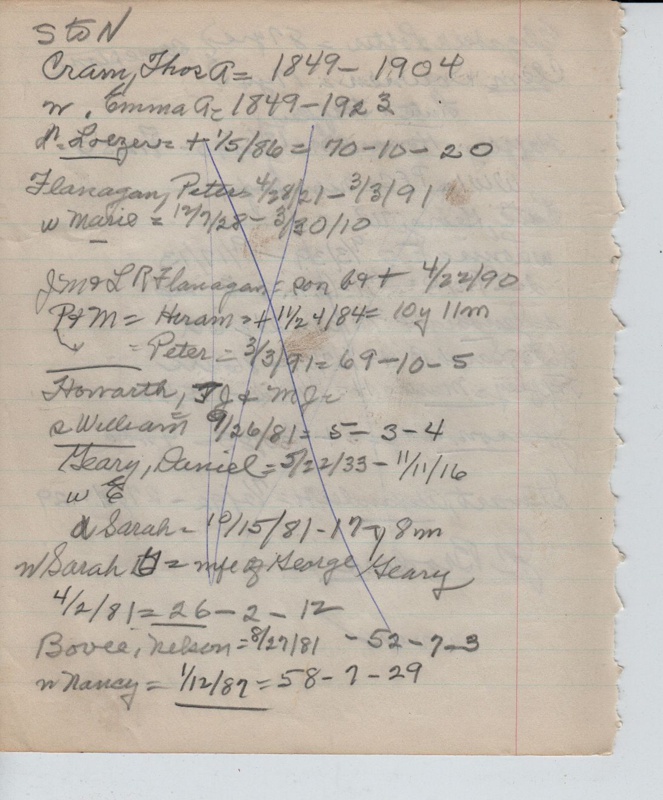 S to N
Cram, Thos A = 1849 - 1904
w. Emma A = 1849 - 1923
= + 1/5/86 = 70 - 10 - 20
Flanagan, Peter = 4/28/21 - 3/3/91
w Marie = 12/7/28 - 3/30/10
J M & L R Flanagan = son 6 + 4/22/90
P & M = Hiram = + 11/24/84 = 10 y 11m
= Peter = 3/3/91 = 69 - 10 - 5
Howarth, J J & M J =
s William 9/26/81 = 5 - 3 - 4
Geary, Daniel = 5/22/33 - 11/11/16
w E
d Sarah = 10/15/81 - 17 y 8m
w Sarah H = wife of George Geary
4/2/81 = 26 - 2 - 12
Bovee, Nelson = 8/27/81 - 52 - 7 - 3
w Nancy = 1/12/87 = 58 - 7 - 29